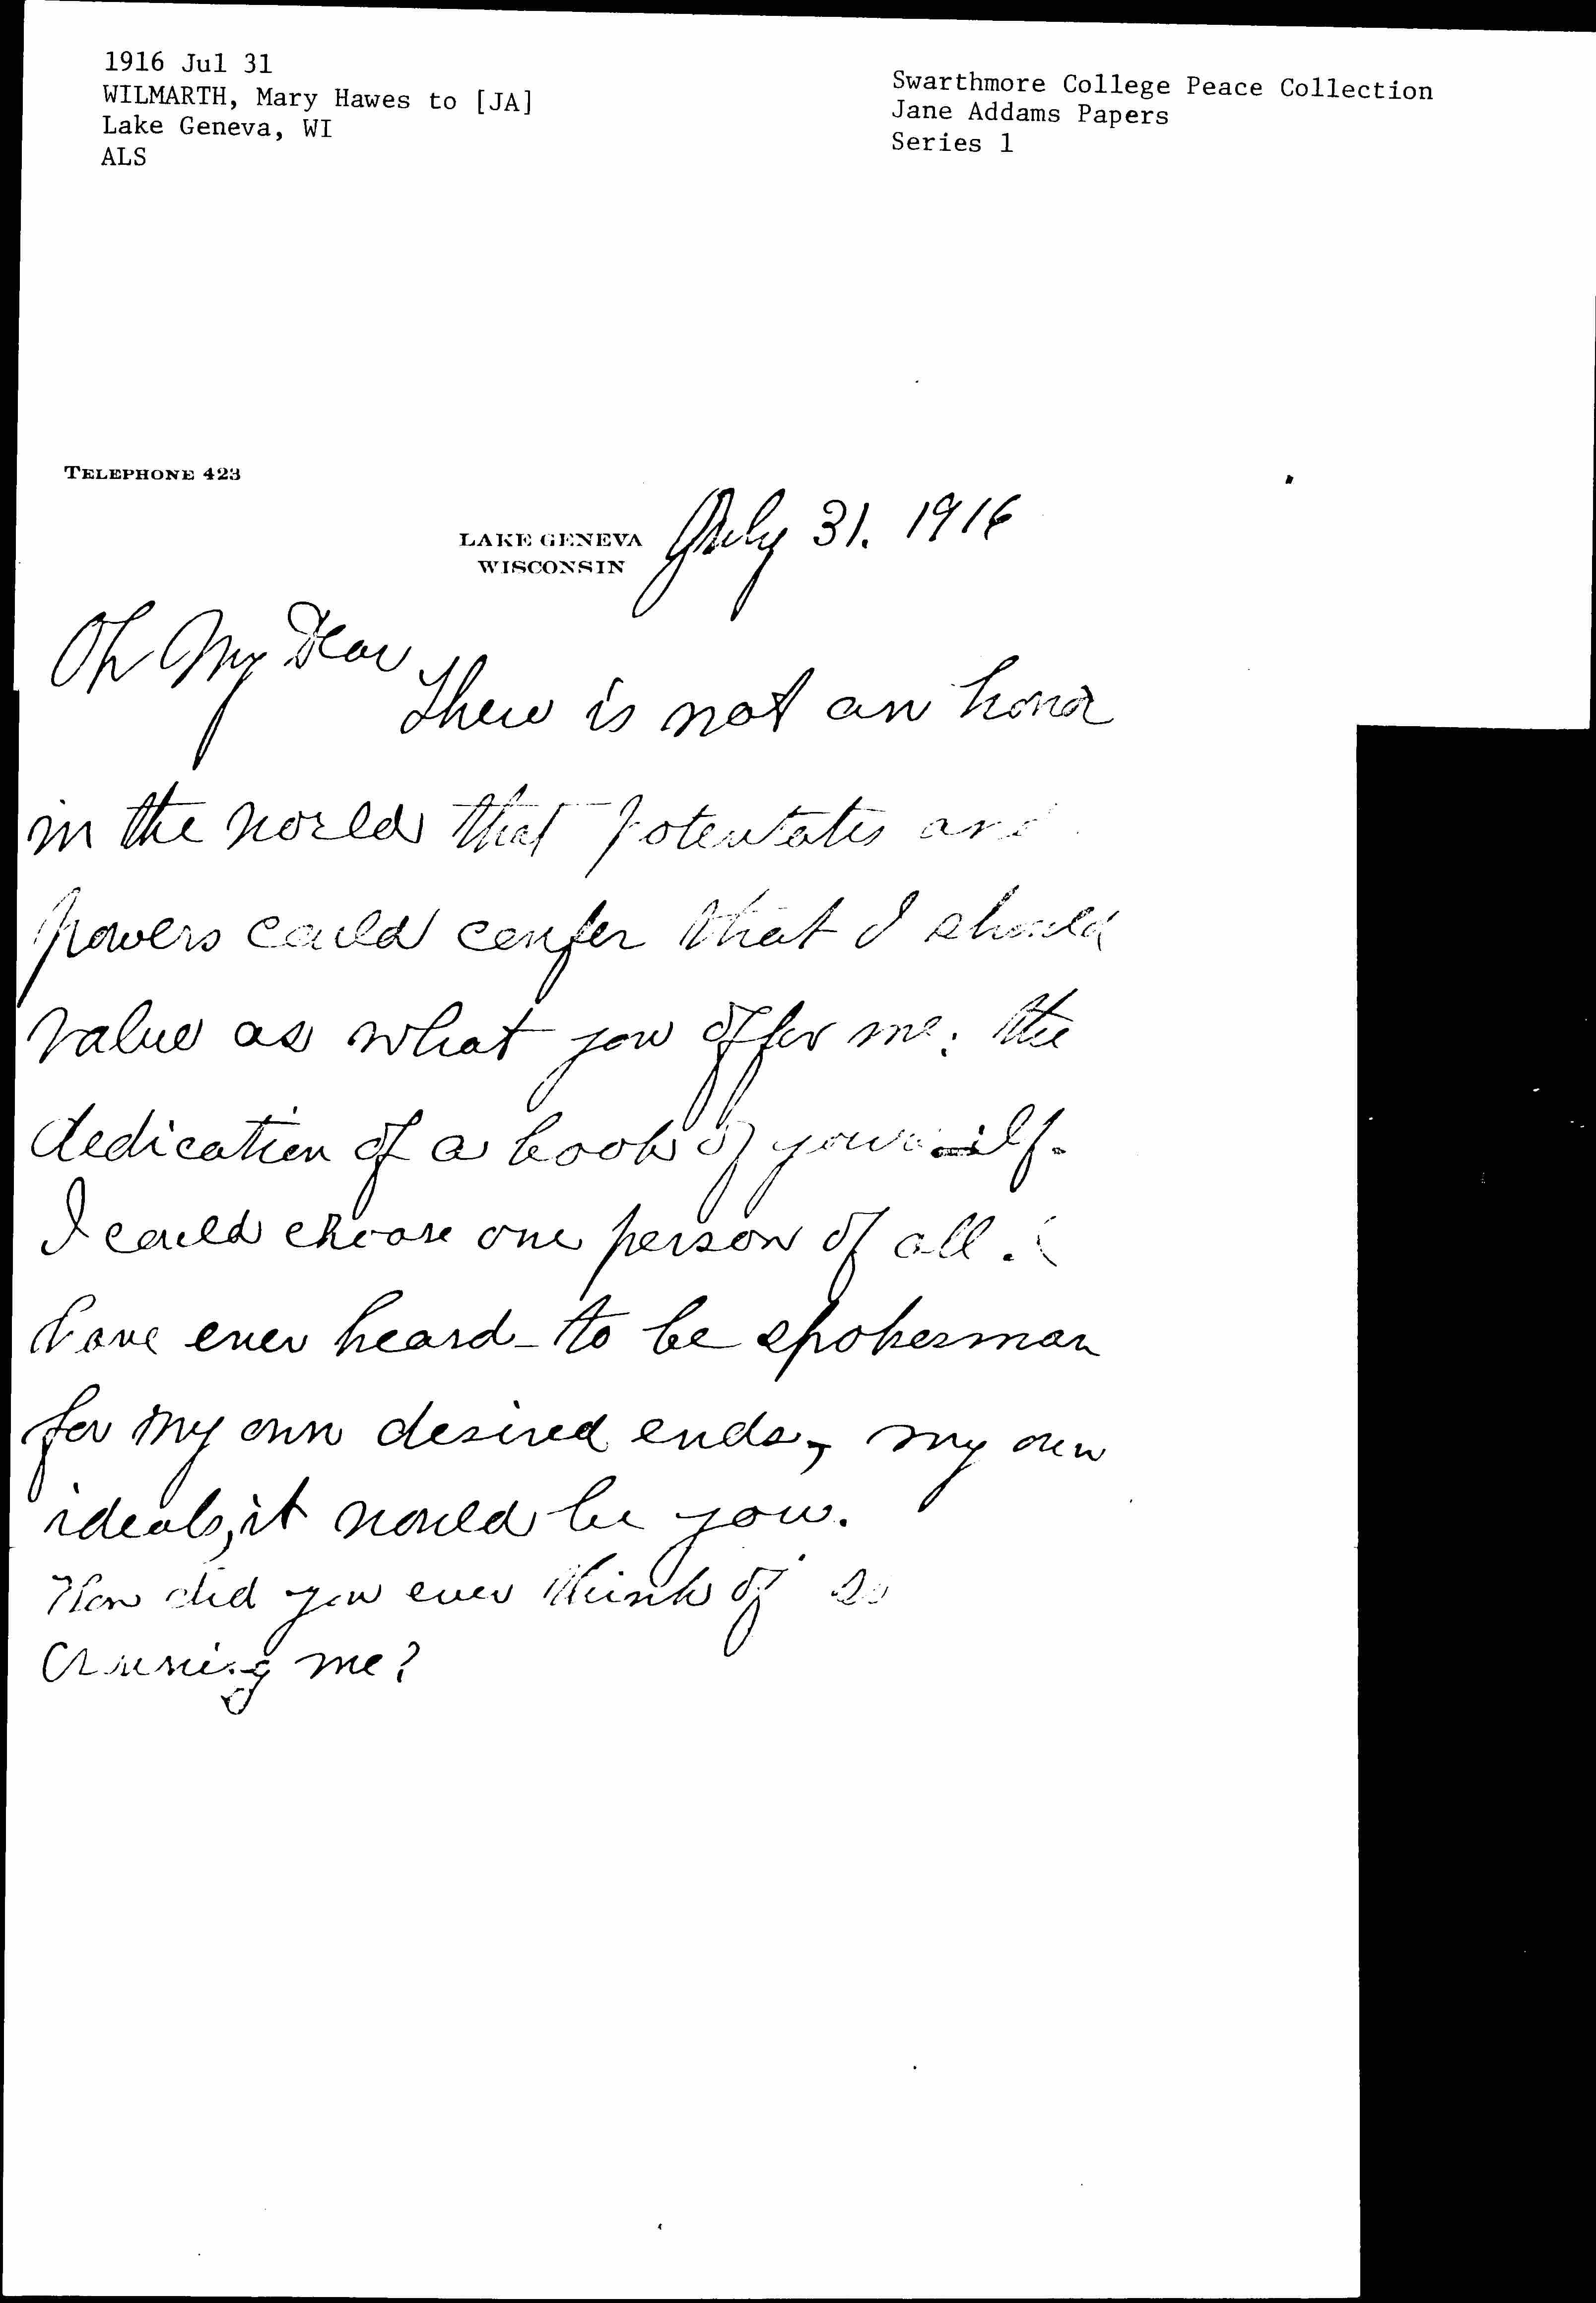 1916 Jul 31
WILMARTH, Mary Hawes to [JA]
Lake Geneva, WI
ALS
Swarthmore College Peace Collection
Jane Addams Papers
Series 1
TELEPHONE 423
LAKE GENEVA
WISCONSIN
July 31. 1916
Oh My Dear
There is not an honor
in the world that potentates and
powers could confer that I should
value as what you offer me: the
dedication of a book of yourself.
I could choose one person of all I
have ever heard - to be spokesman
for my own desired ends, my own
ideals, it would be you.
How did you ever think of so
crowning me?